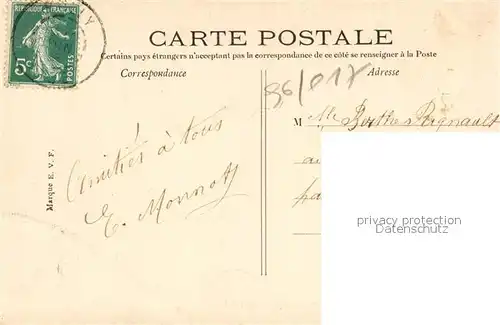 RÉPUBLIQUE FRANÇAISE
5c
POSTES
CARTE POSTALE
Certains pays étrangers n'acceptant pas la correspondance de ce côté se renseigner à la Poste
Correspondance
Adresse
96/017
M lle Berthe Regnault
Amitiés à tous
E. Monnot
Marque E. V. F.
privacy protection
Datenschutz